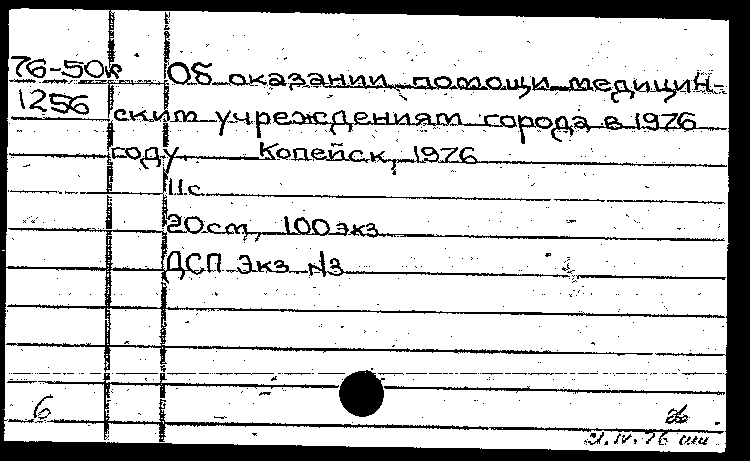 76-50к Об оказании помощи медицин-
1256 ским учреждениям города в 1976
году. Копейск, 1976
11с
20ст, 100экз
ДСП Экз №3
6
21.IV.76